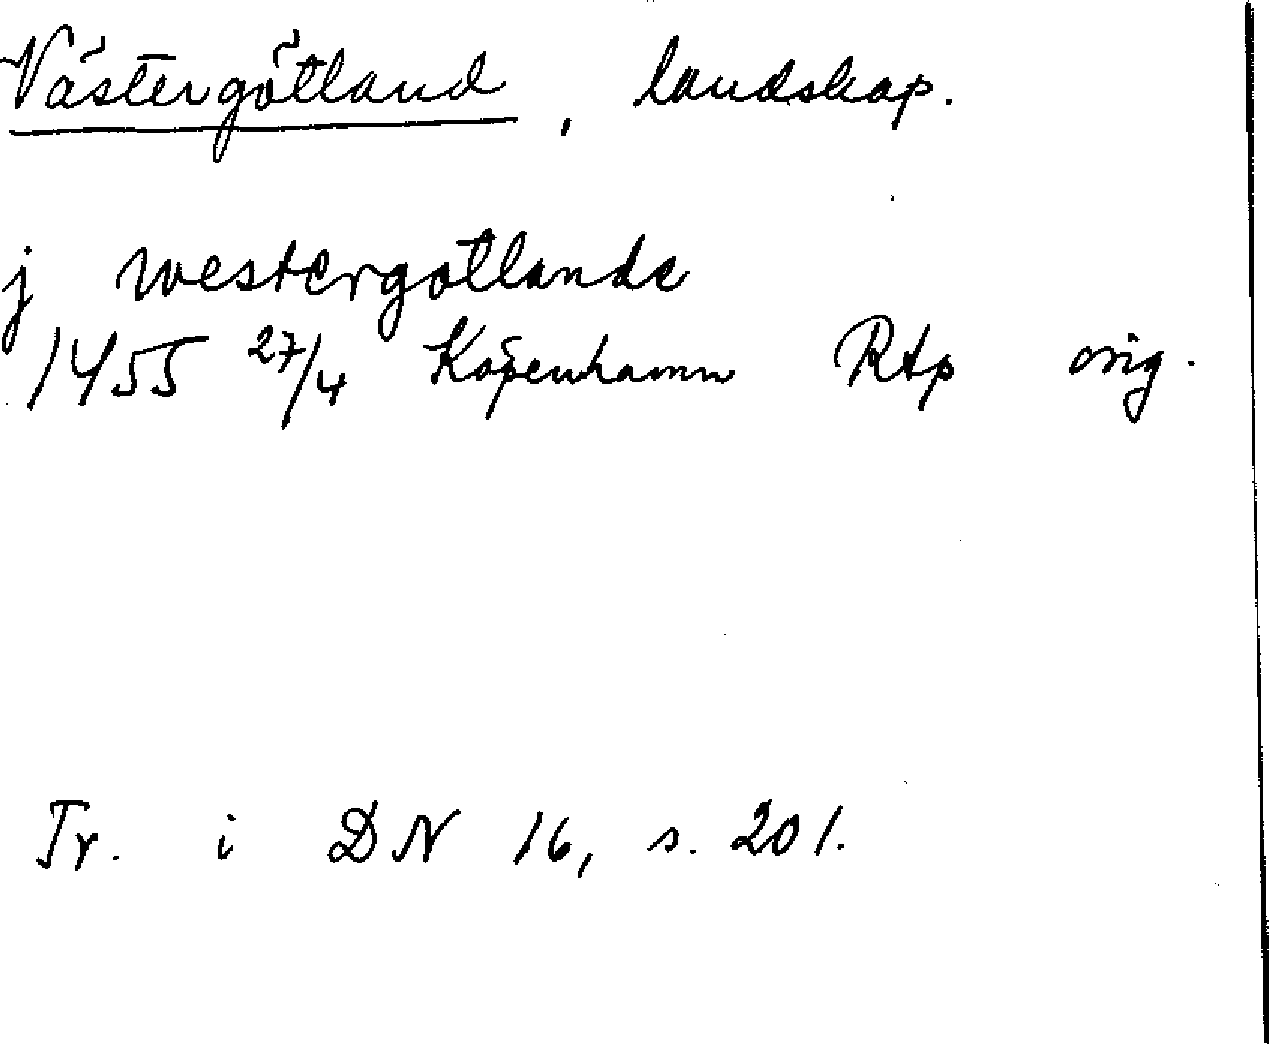 Västergötland, landskap.
j westergotlande
1455 27/4 Köpenhamn Rtp orig.
Tr. i DN 16, s. 201.